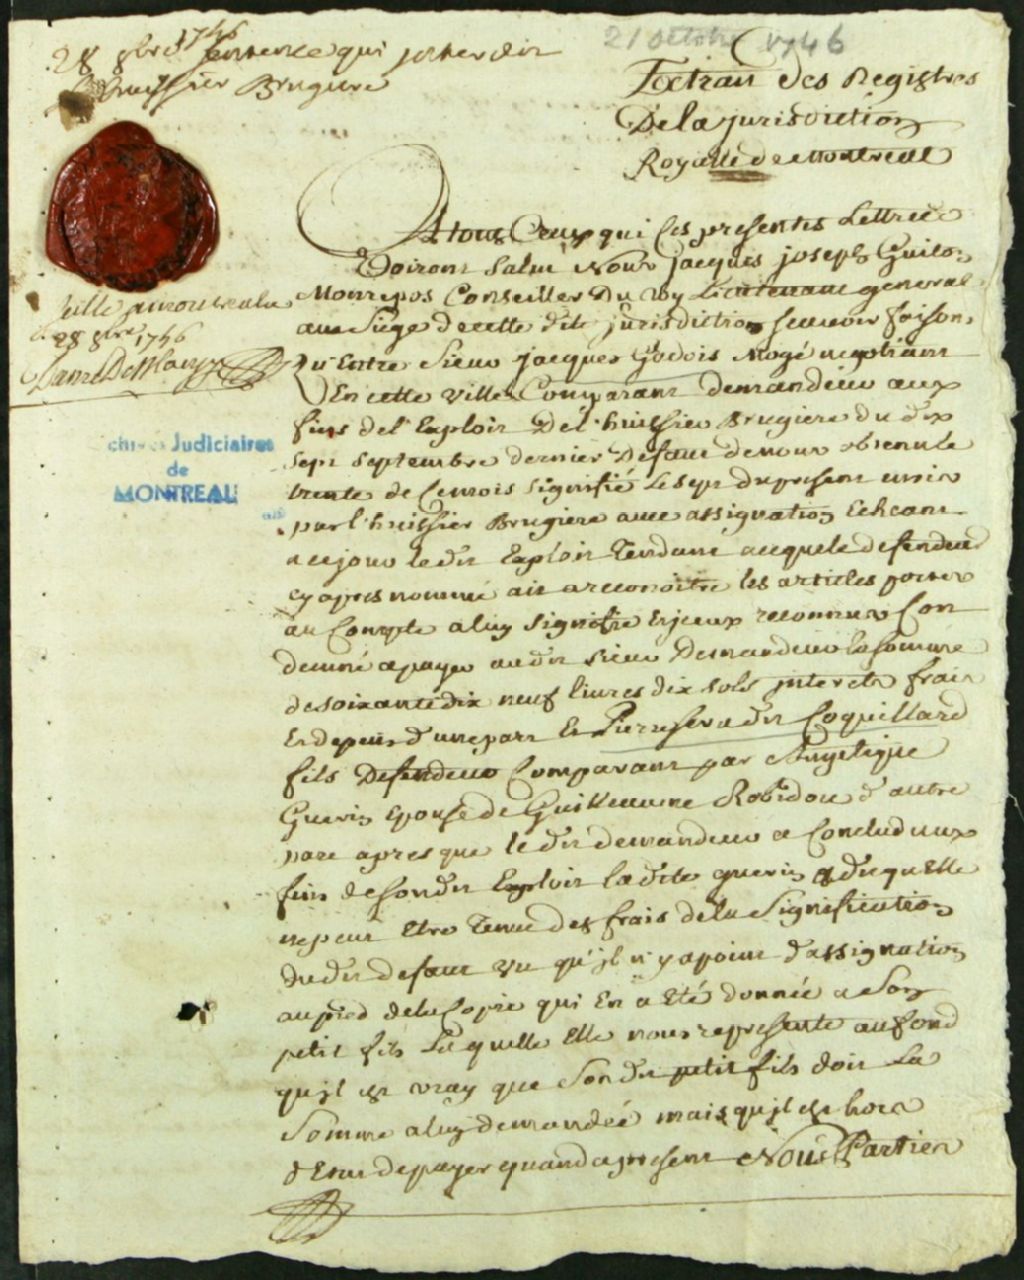 28 8bre 1746
Sentence qui interdit
L'huissier Brugiere
21 Octobre 1746
Extrait des Registres
De la jurisdiction
Royalle de Montreal
A tous Ceux qui ces presentes Lettres
Voiront Salut Nous Jacques joseph Guiton
Monrepos Conseiller Du Roy Lieutenant general
au Siege de cette dite jurisdiction scavoir faisons
Qu'Entre Sieur jacques Godois Mogé negotiant
En cette ville Comparant demandeur aux
fins de l'Exploit De l'huissier Brugiere du dix
sept septembre dernier Defaut de nous obtenu le
trente de ce mois signifié le sept du present mois
par l'huissier Brugiere avec assignation Echeant
a ce jour le dit Exploit Tendant a ce que le defendeur
cy apres nommé ait a reconoitre les articles portés
au Compte a luy signifié et jceux reconnus Con
demné a payer au dit sieur Demandeur la somme
de soixante dix neuf livres dix sols interets frais
Et depens d'une part Et Pierre dit Coquillard
fils Defendeur Comparant par Angelique
Guerin Epouse de Guillaume Robidou d'autre
part apres que le dit demandeur a Conclud aux
fins de son dit Exploit la dite guerin a dit qu'elle
ne peut Etre Tenue des frais de la Signification
du dit defaut vu qu'jl n'y a point d'assignation
au pied de la Copie qui En a Eté donnée a Son
petit fils Laquelle Elle nous represente au fond
qu'jl est vray que Son dit petit fils doit La
Somme a luy demandée mais qu'jl est hors
d'Etat de payer quand a present Nous Parties
Scellé a montreal le
28 8bre 1746
Danré DeBlanzy
Archives Judiciaires
de
MONTREAL